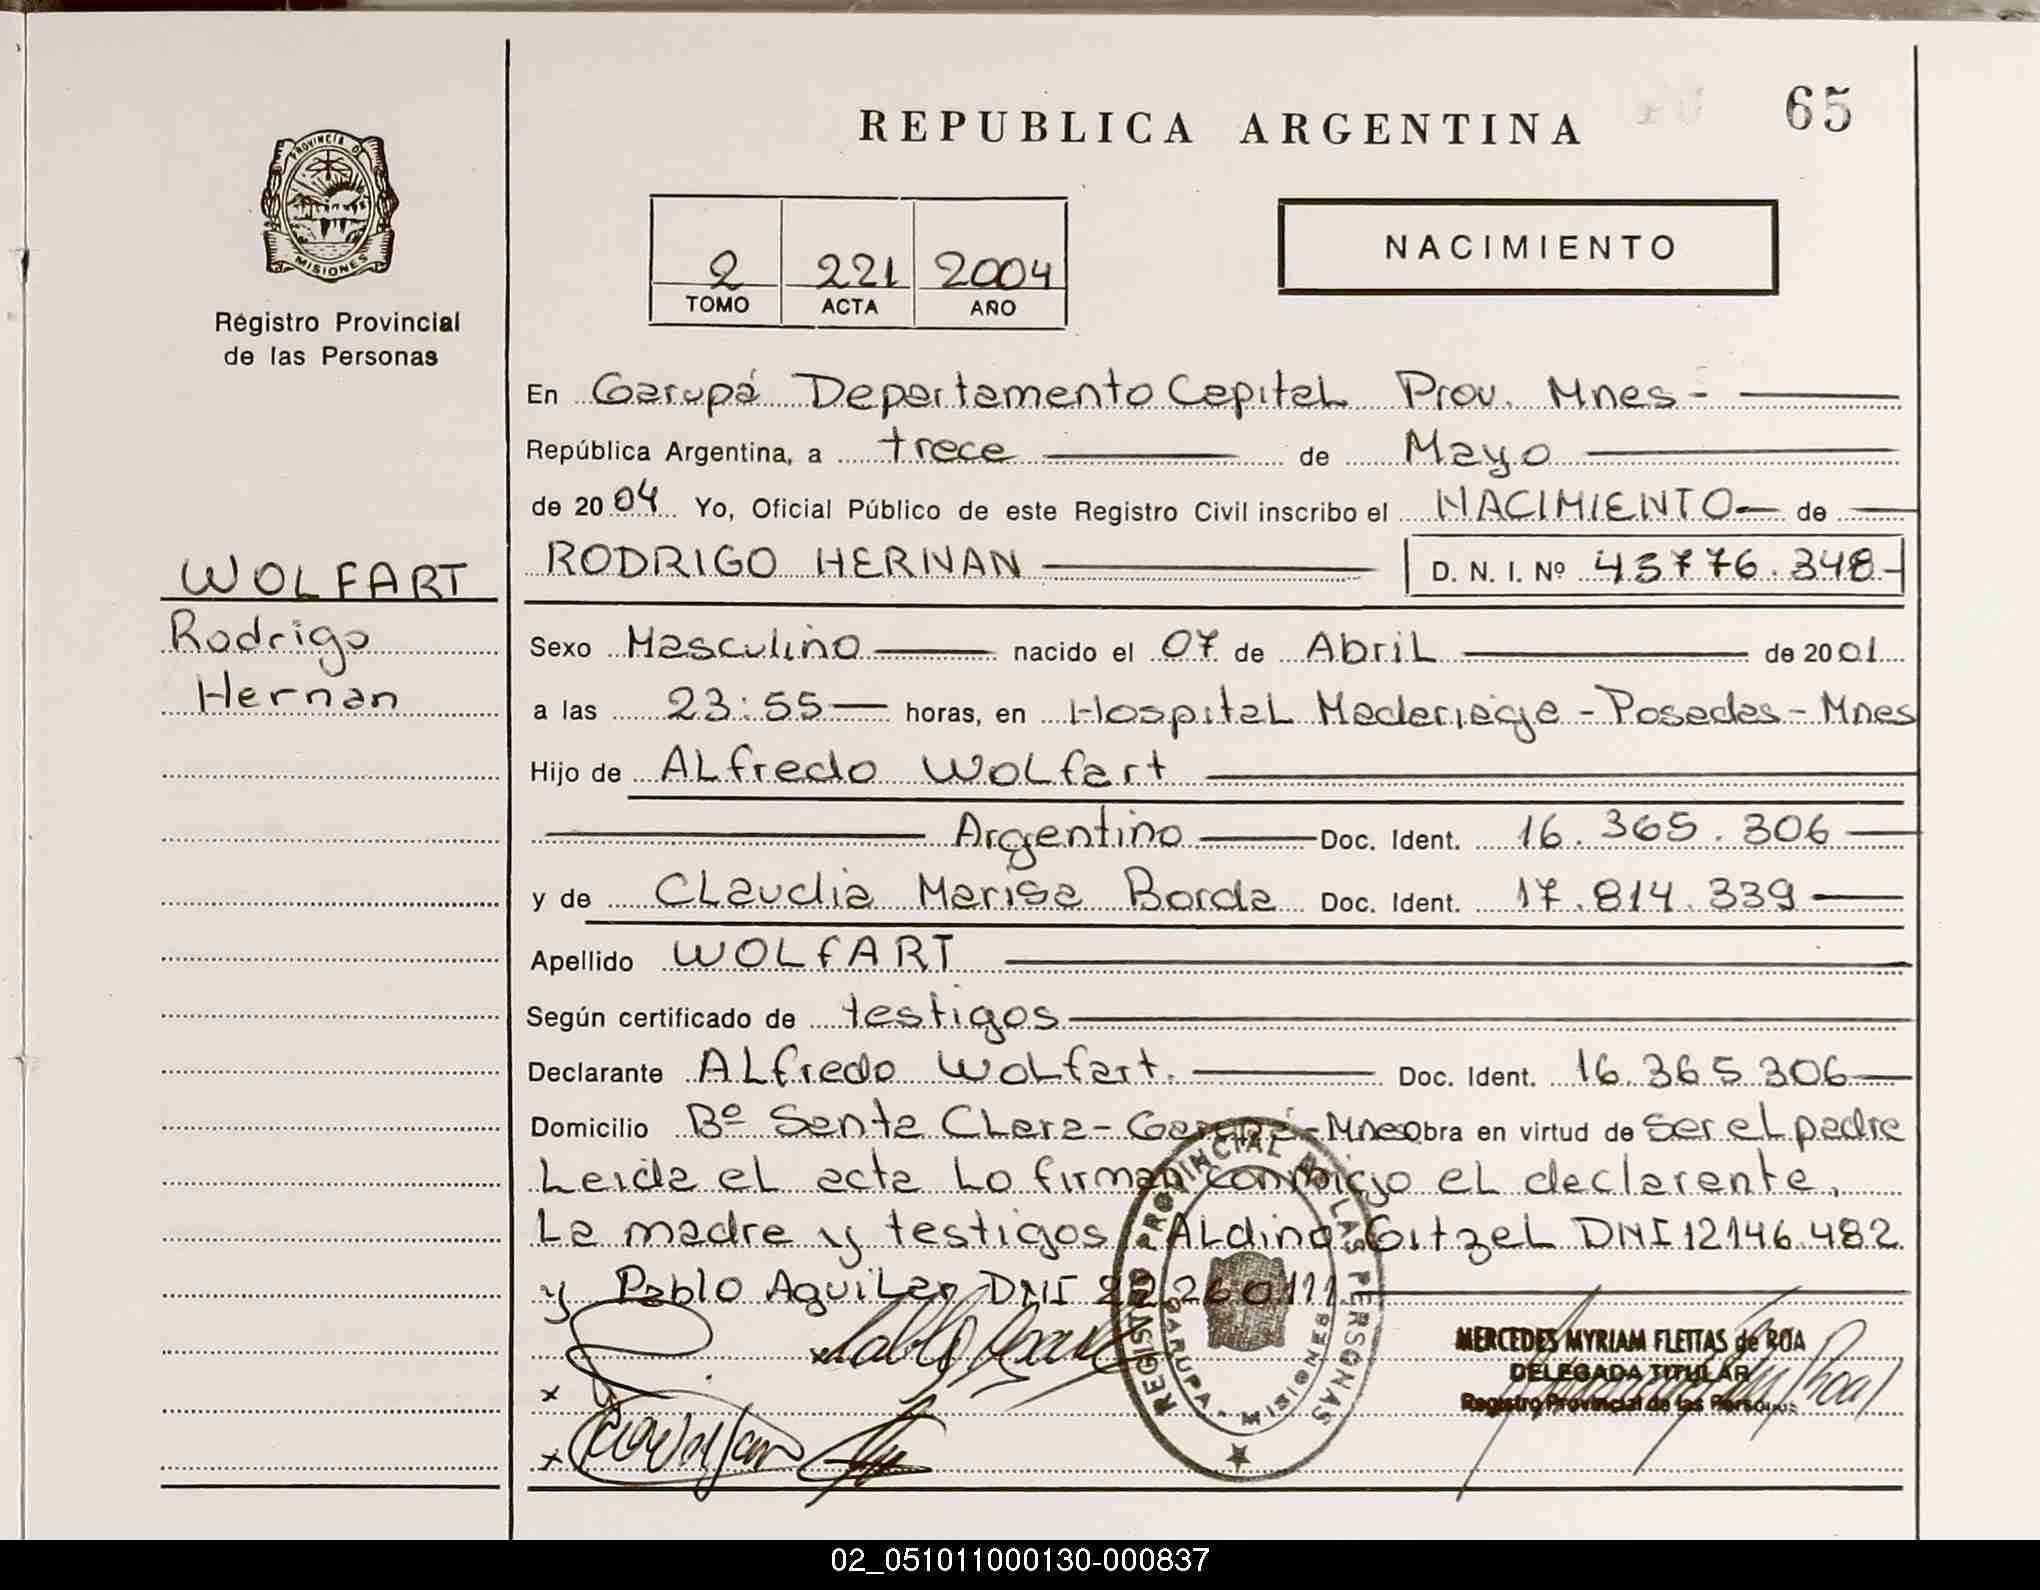 65
REPUBLICA ARGENTINA
PROVINCIA D
MISIONES
Registro Provincial
de las Personas
NACIMIENTO
2 221 2004
TOMO ACTA AÑO
En Garupá Departamento Capital Prov. Mnes -
República Argentina, a trece de Mayo
de 2004 Yo, Oficial Público de este Registro Civil inscribo el NACIMIENTO de
RODRIGO HERNAN D. N. I. Nº 43776.348-
WOLFART
Rodrigo
Hernan
Sexo Masculino nacido el 07 de Abril de 2001
a las 23:55 horas, en Hospital Madariaga - Posadas - Mnes
Hijo de Alfredo Wolfart
Argentino Doc. Ident. 16.365.306
y de Claudia Marisa Borda Doc. Ident. 17.814.339
Apellido WOLFART
Según certificado de testigos
Declarante Alfredo Wolfart. Doc. Ident. 16.365.306
Domicilio Bº Santa Clara - Garupá - Mnes Obra en virtud de ser el padre
Leida el acta Lo firman conmigo el declarante,
La madre y testigos Aldino Gitzel DNI 12146.482
y Pablo Aguilar DNI 22.260111
REGISTRO PROVINCIAL DE LAS PERSONAS
GARUPA - MISIONES
MERCEDES MYRIAM FLEITAS de ROA
DELEGADA TITULAR
Registro Provincial de las Personas
02_051011000130-000837